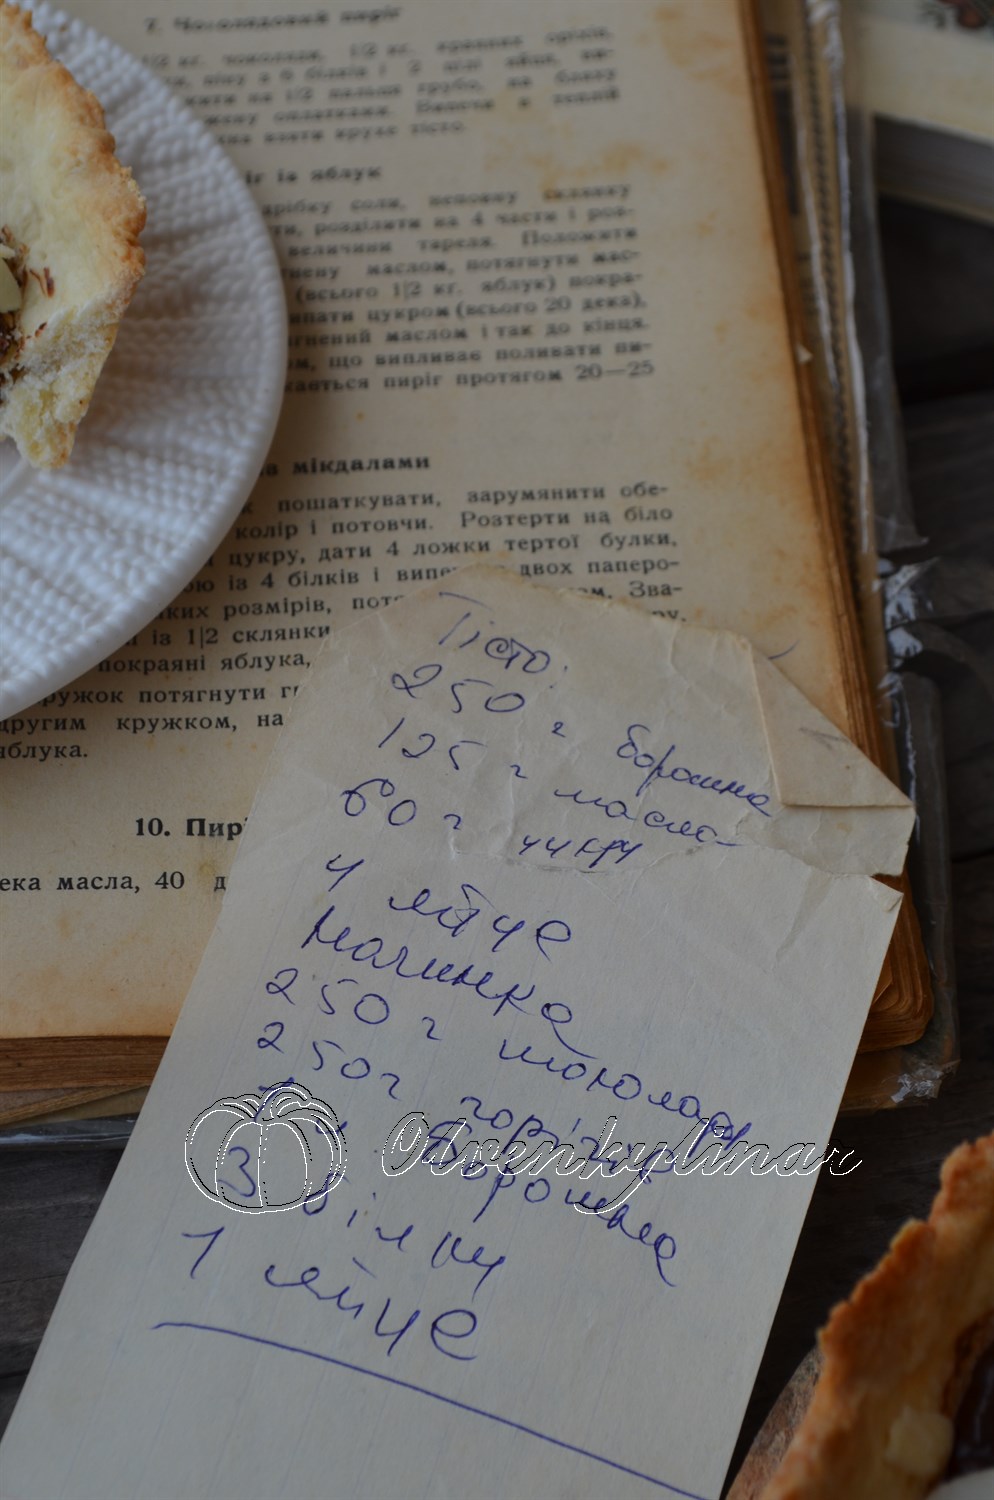 7. Чоколядовий пиріг
1/2 кг. чоколяди, 1/2 кг. краяних оріхів,
піну з 6 білків і 2 цілі яйця, ви-
на 1/2 пальця грубо, на бляху
оплатками. Випечи в теплій
взяти крухе тісто.
із яблук
дрібку соли, неповну склянку
розділити на 4 части і роз-
величини тареля. Положити
маслом, потягнути мас-
(всього 1|2 кг. яблук) покра-
цукром (всього 20 дека),
маслом і так до кінця.
що випливає поливати пи-
пиріг протягом 20—25
мікдалами
пошаткувати, зарумянити обе-
колір і потовчи. Розтерти на біло
цукру, дати 4 ложки тертої булки,
із 4 білків і двох паперо-
розмірів, Зва-
із 1|2 склянки
покраяні яблука,
потягнути
другим кружком, на
яблука.
10.
масла, 40
Тісто:
250 г борошна
125 г масла
60 г цукру
1 яйце
Начинка
250 г шоколаду
250 г горіхів
борошна
3 білки
1 яйце
Otvenkylinar